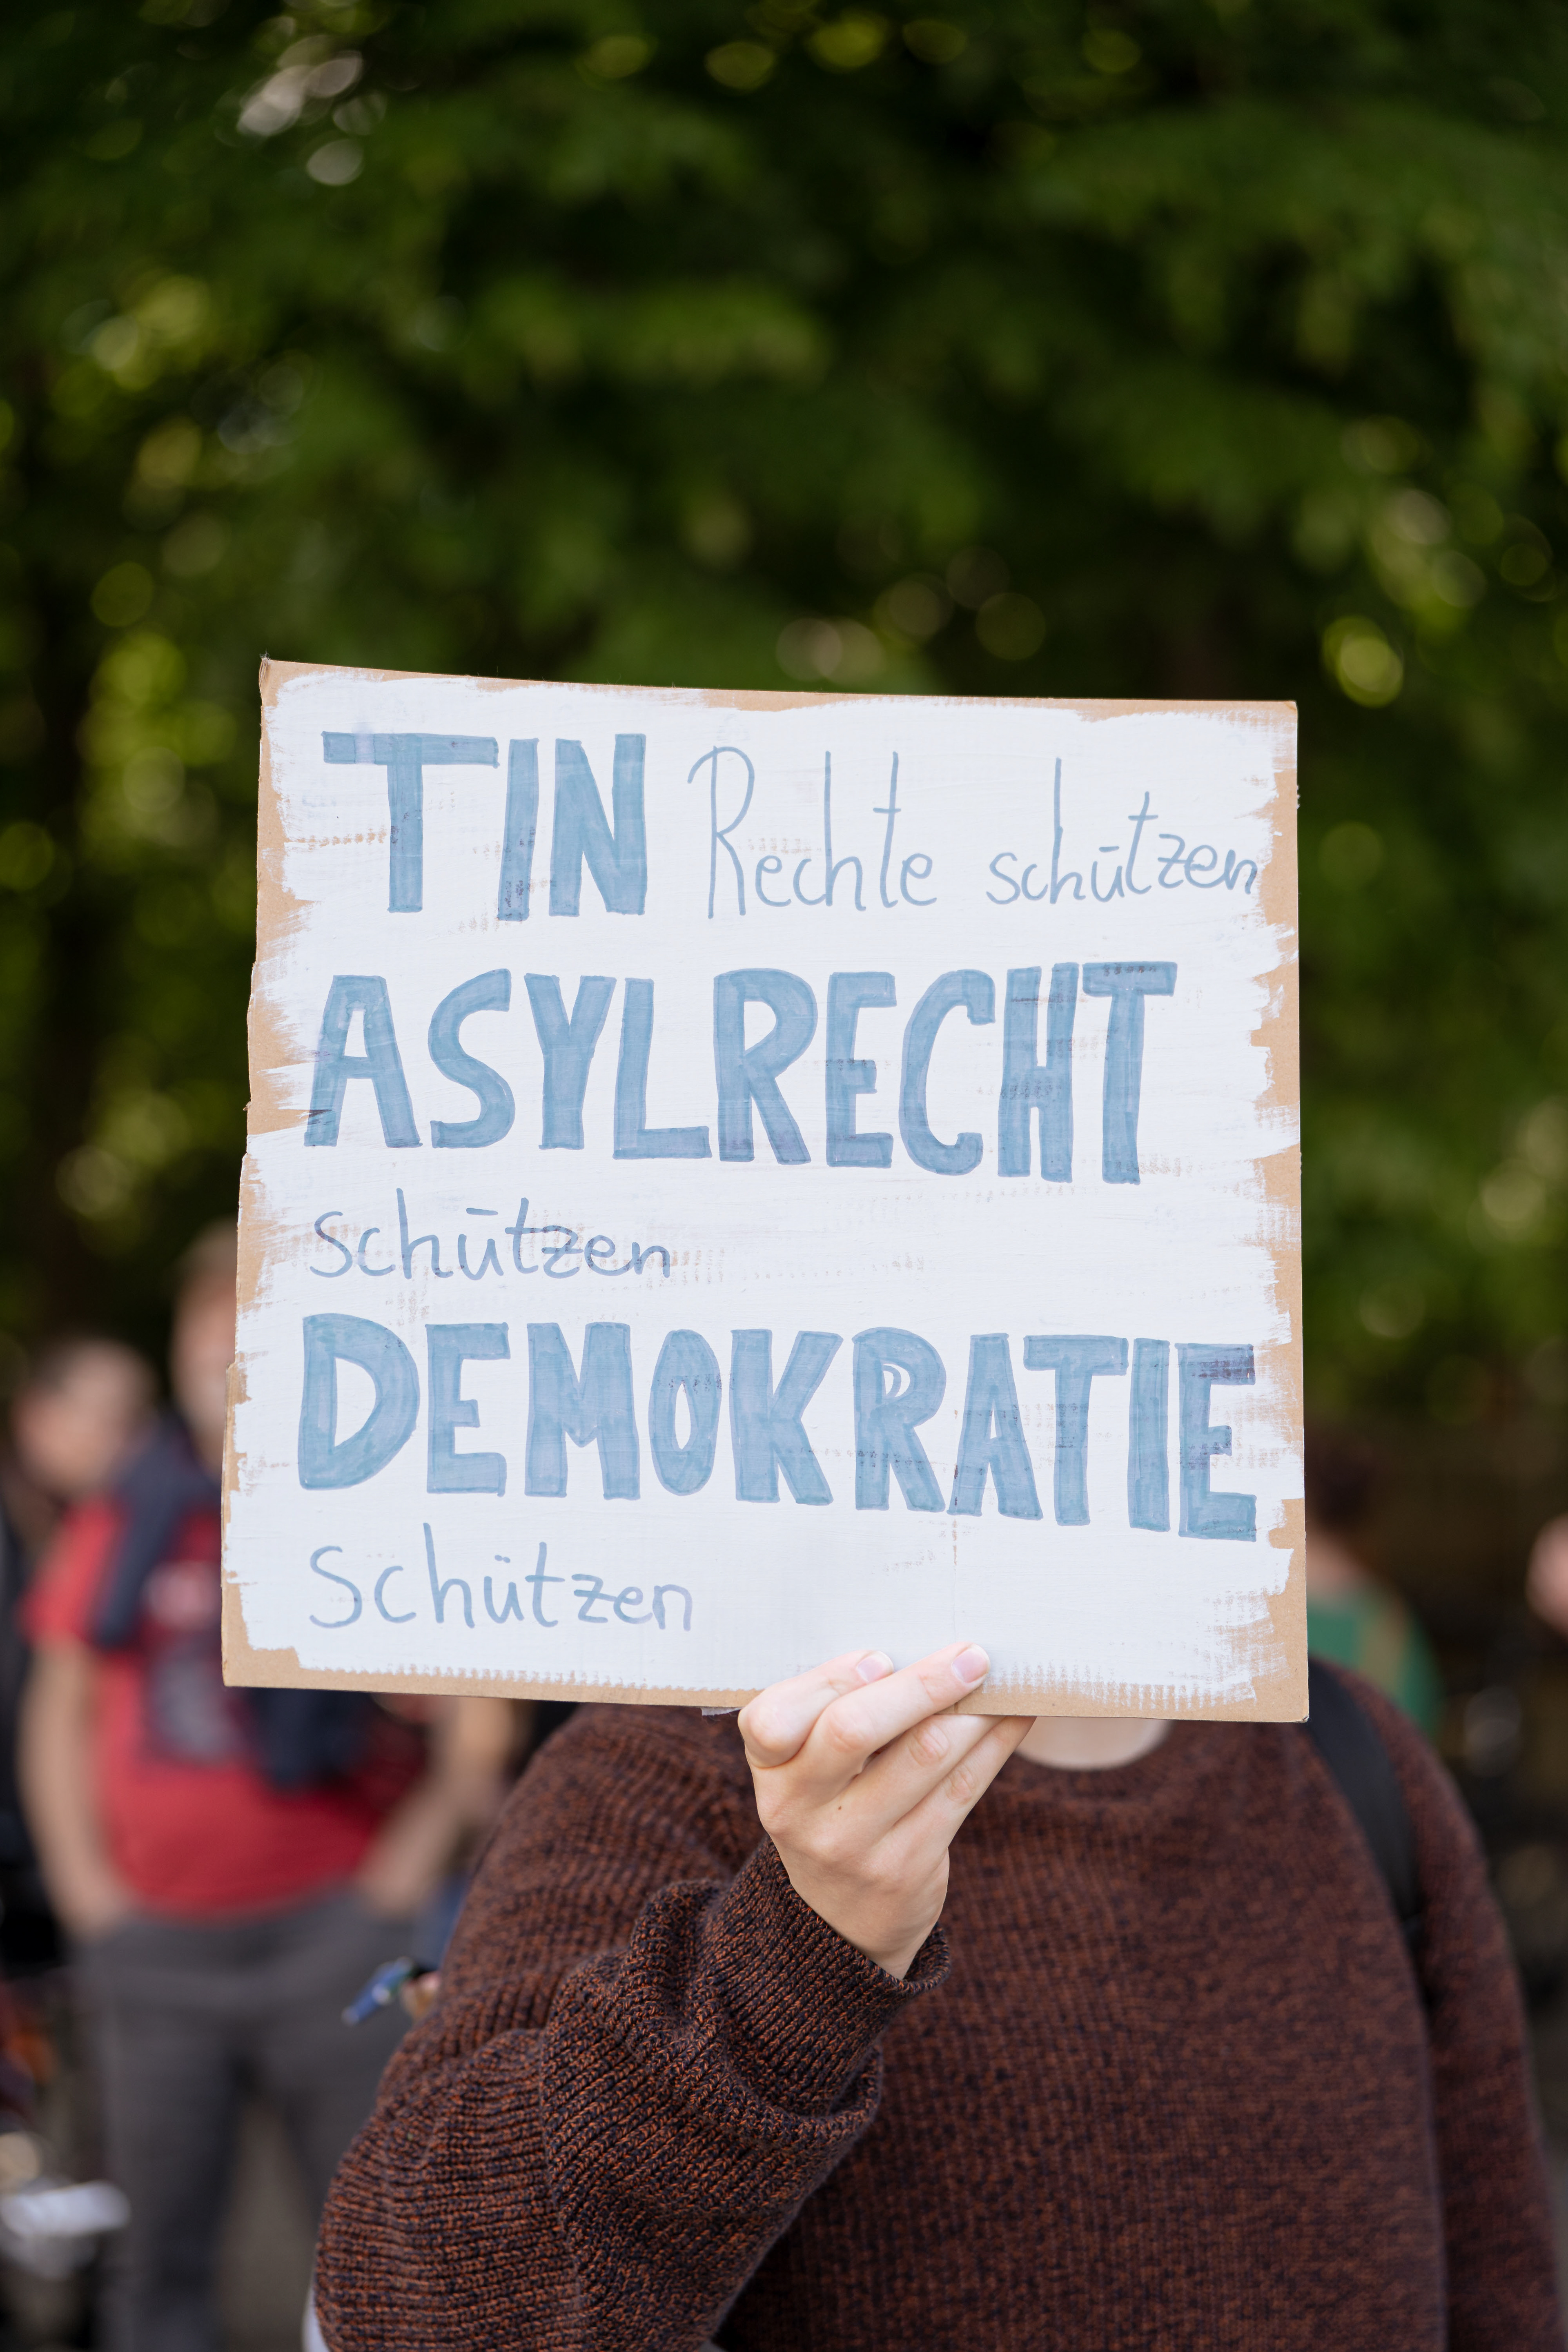 TIN Rechte schützen
ASYLRECHT
schützen
DEMOKRATIE
Schützen